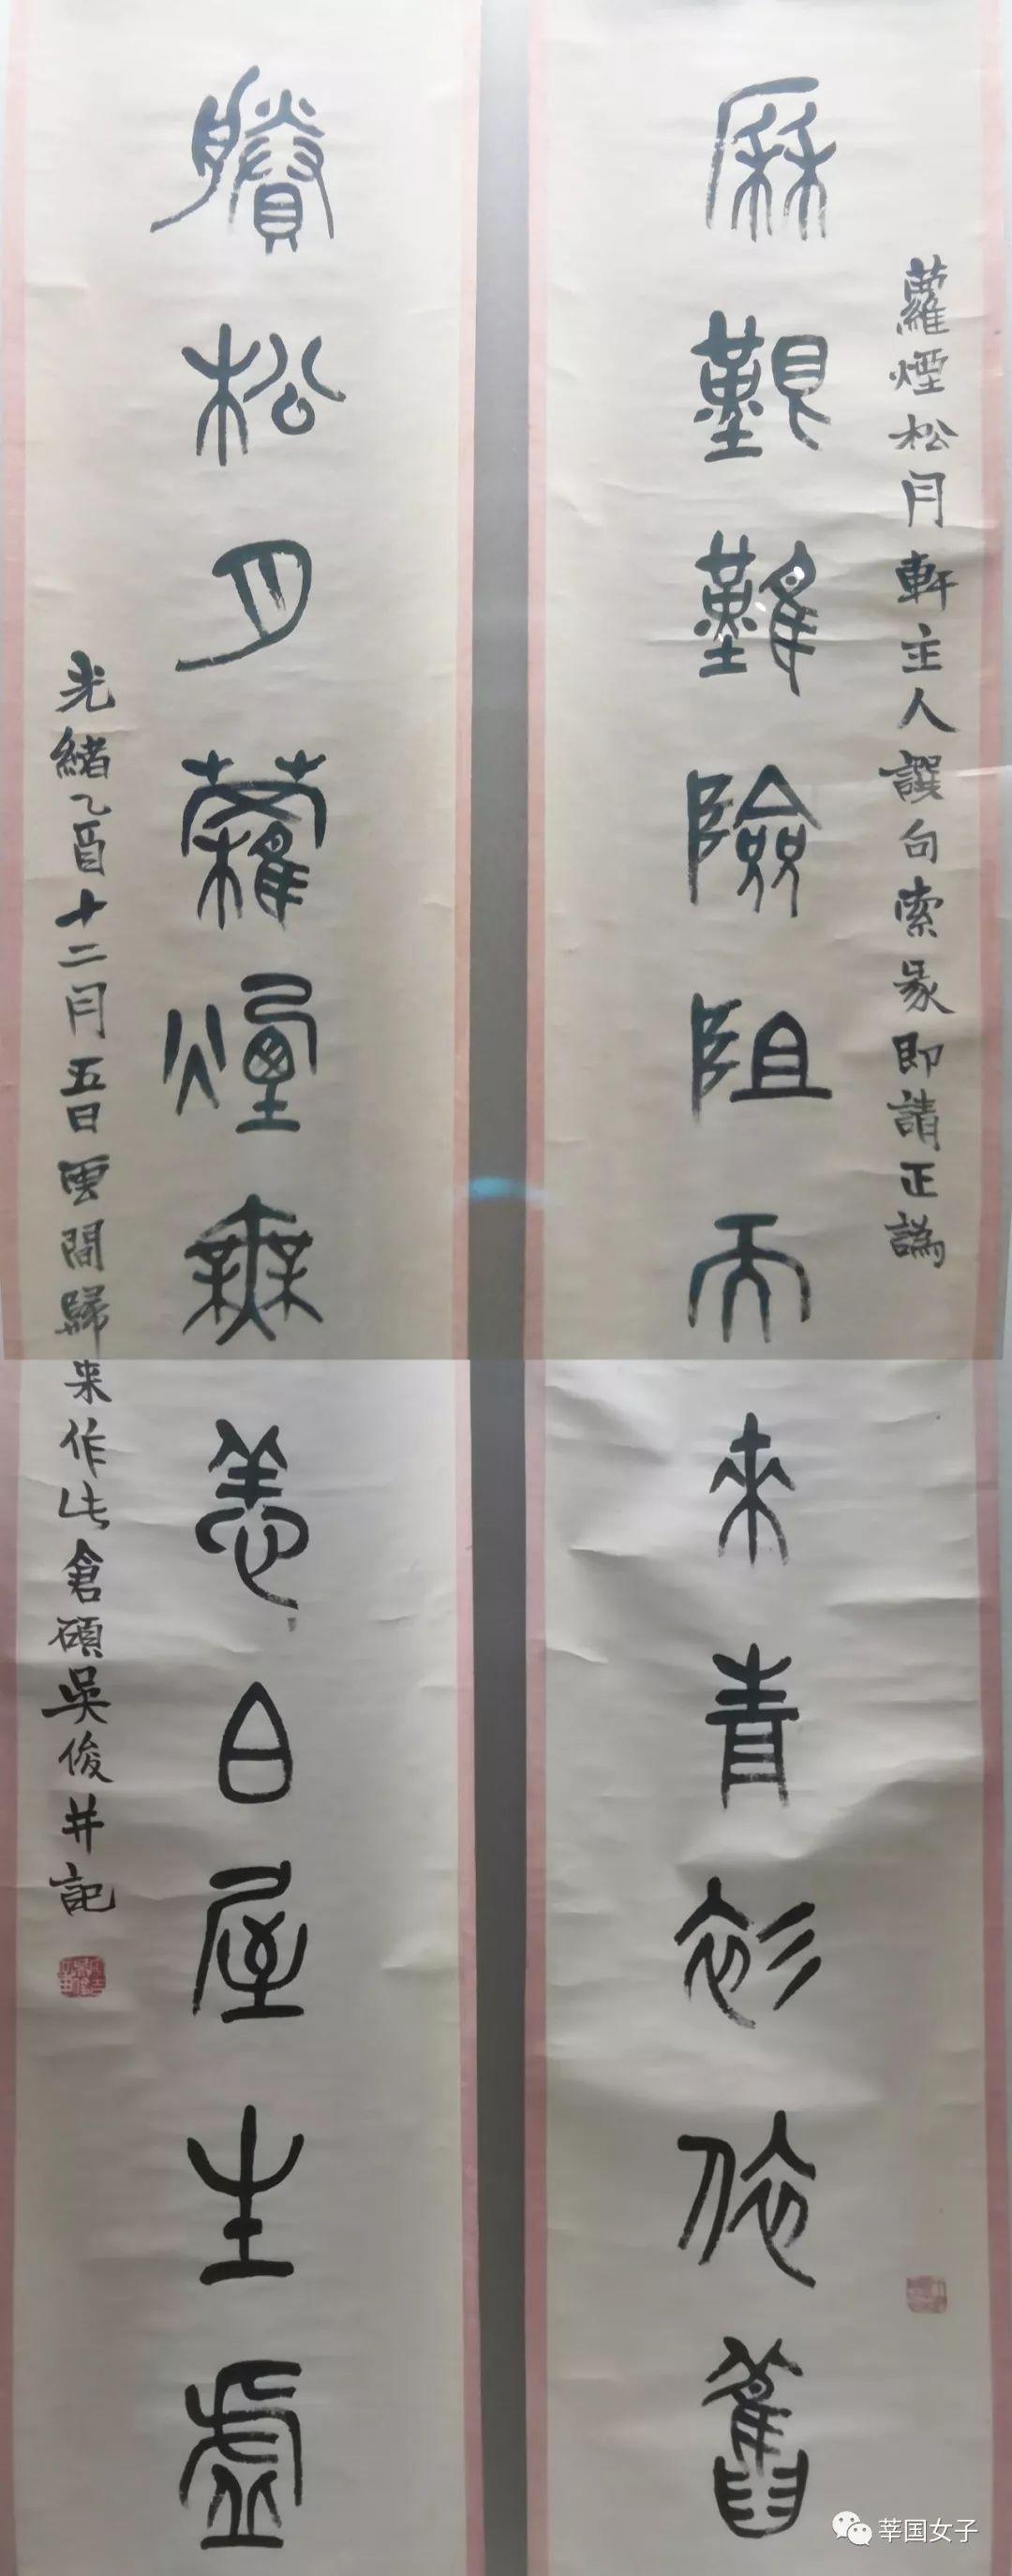 蘿煙松月軒主人譔句索彖即請正譌
厤艱難險阻而來青衫依舊
賸松月蘿煙無恙白屋生虛
光緒乙酉十二月五日雲間歸来作此倉碩吳俊并記
莘国女子